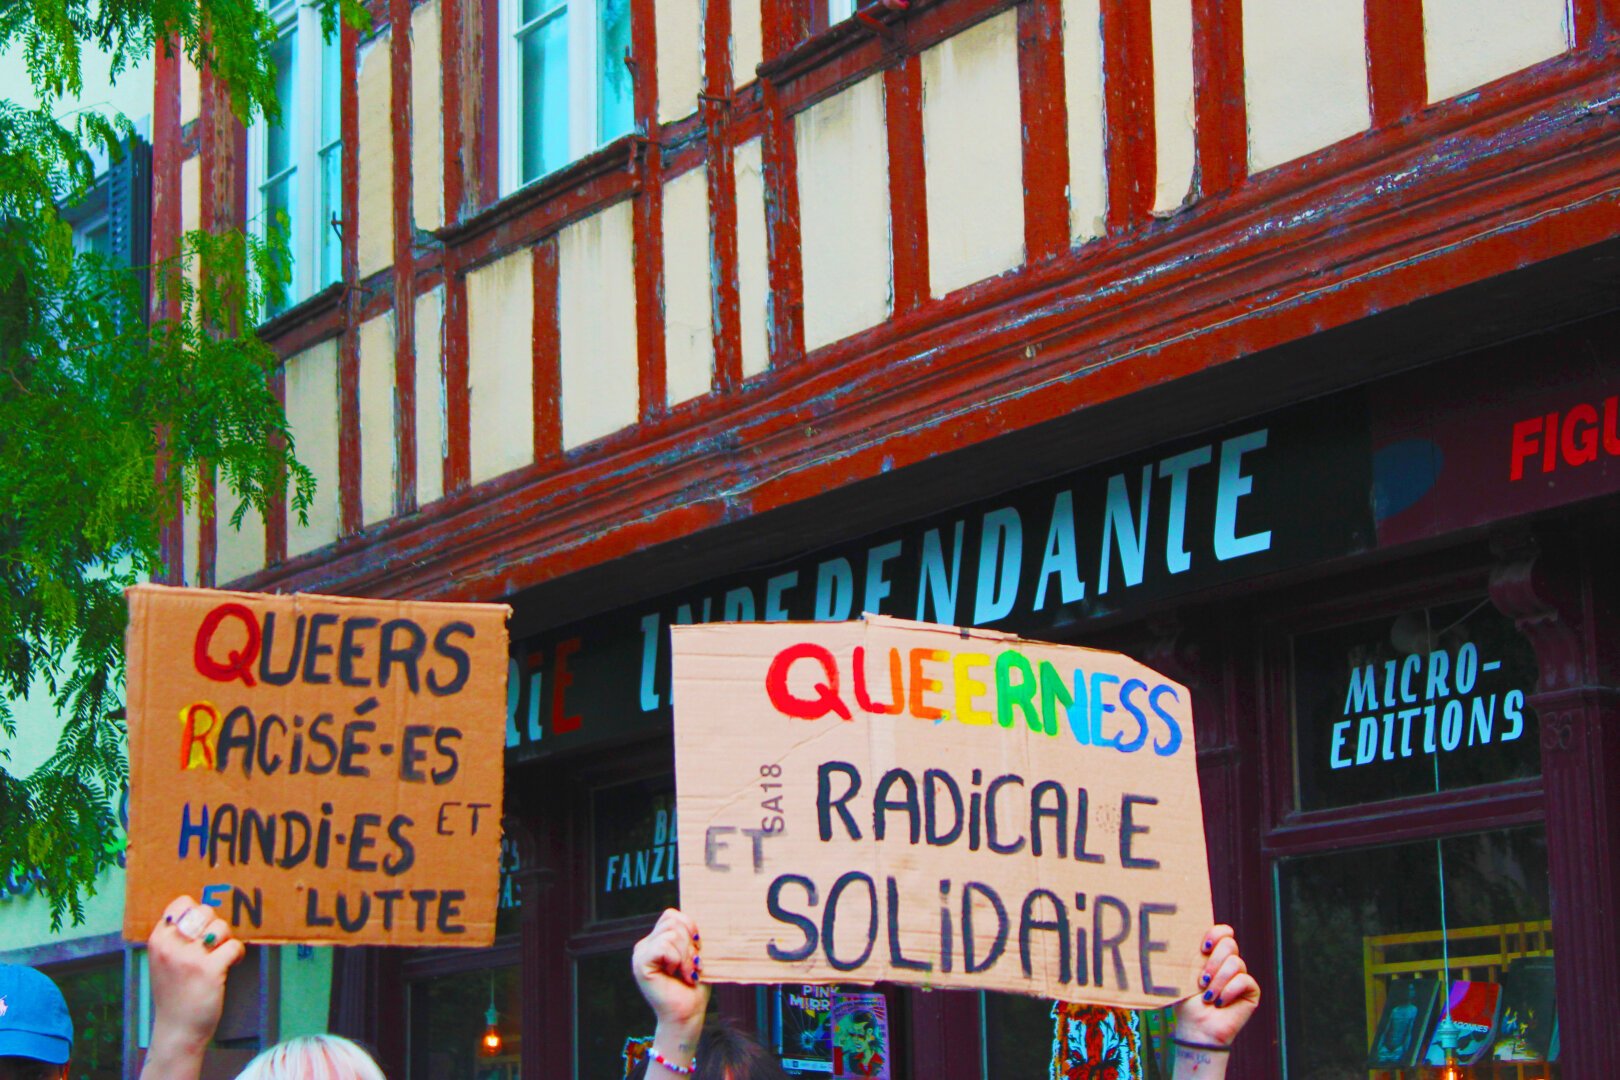 INDEPENDANTE
FIGU
MICRO-
EDITIONS
QUEERS
RACISÉ·ES
HANDI·ES ET
EN LUTTE
QUEERNESS
RADICALE
ET
SOLIDAIRE
SA18
36
PINK